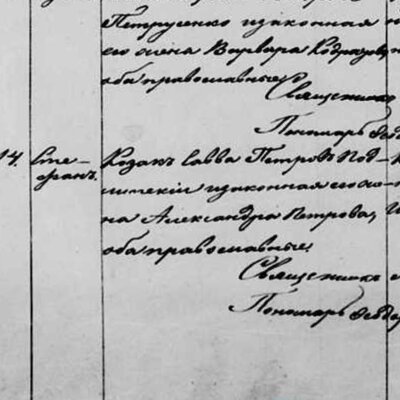 Петрусенко и законная
его жена Варвара
оба православные.
Священник
Пономарь
14. Сте-
фанъ.
Козакъ Савва Петровъ Под-
и законная его же-
на Александра Петрова,
оба православные.
Священник
Пономарь